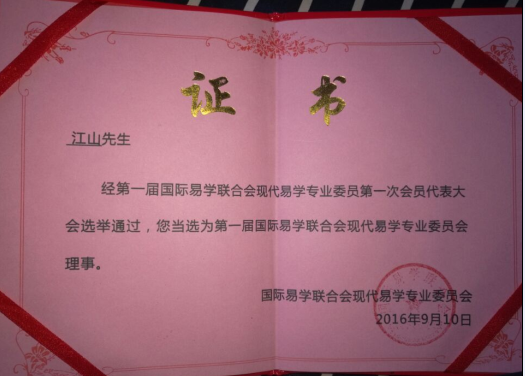 证 书
江山先生
经第一届国际易学联合会现代易学专业委员第一次会员代表大
会选举通过，您当选为第一届国际易学联合会现代易学专业委员会
理事。
国际易学联合会现代易学专业委员会
2016年9月10日